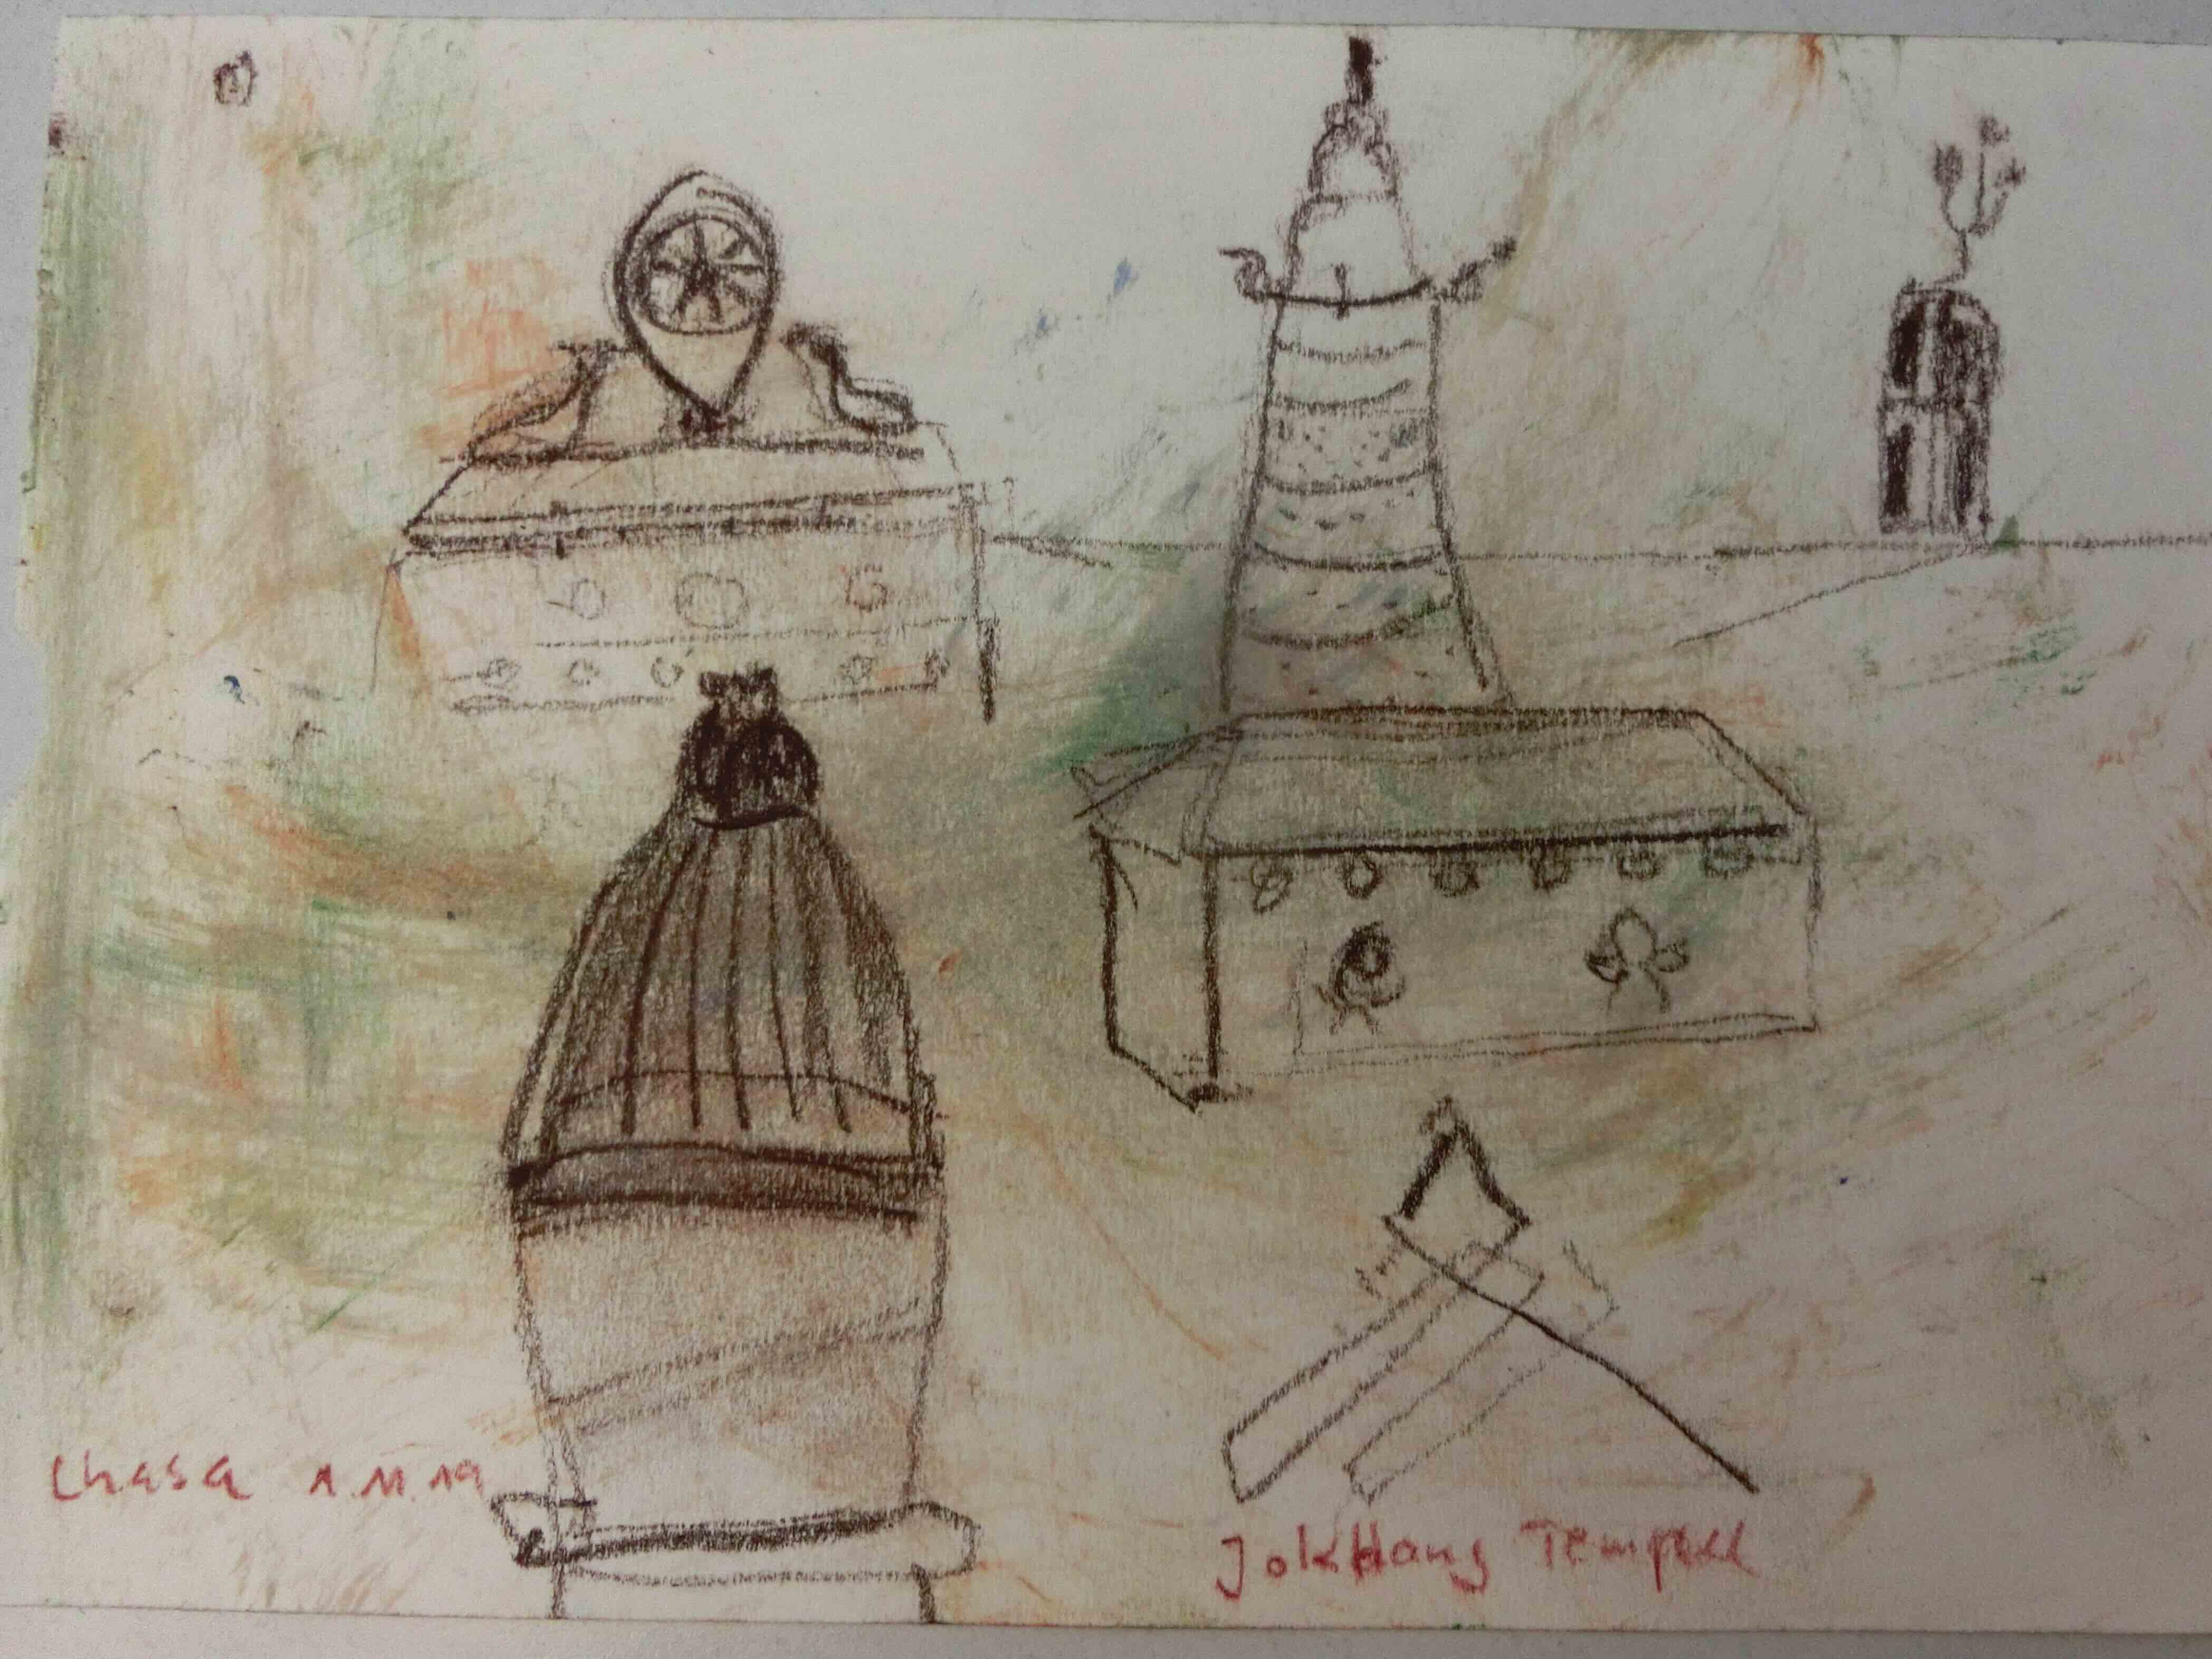 Lhasa 1.11.19
JokHang Tempel